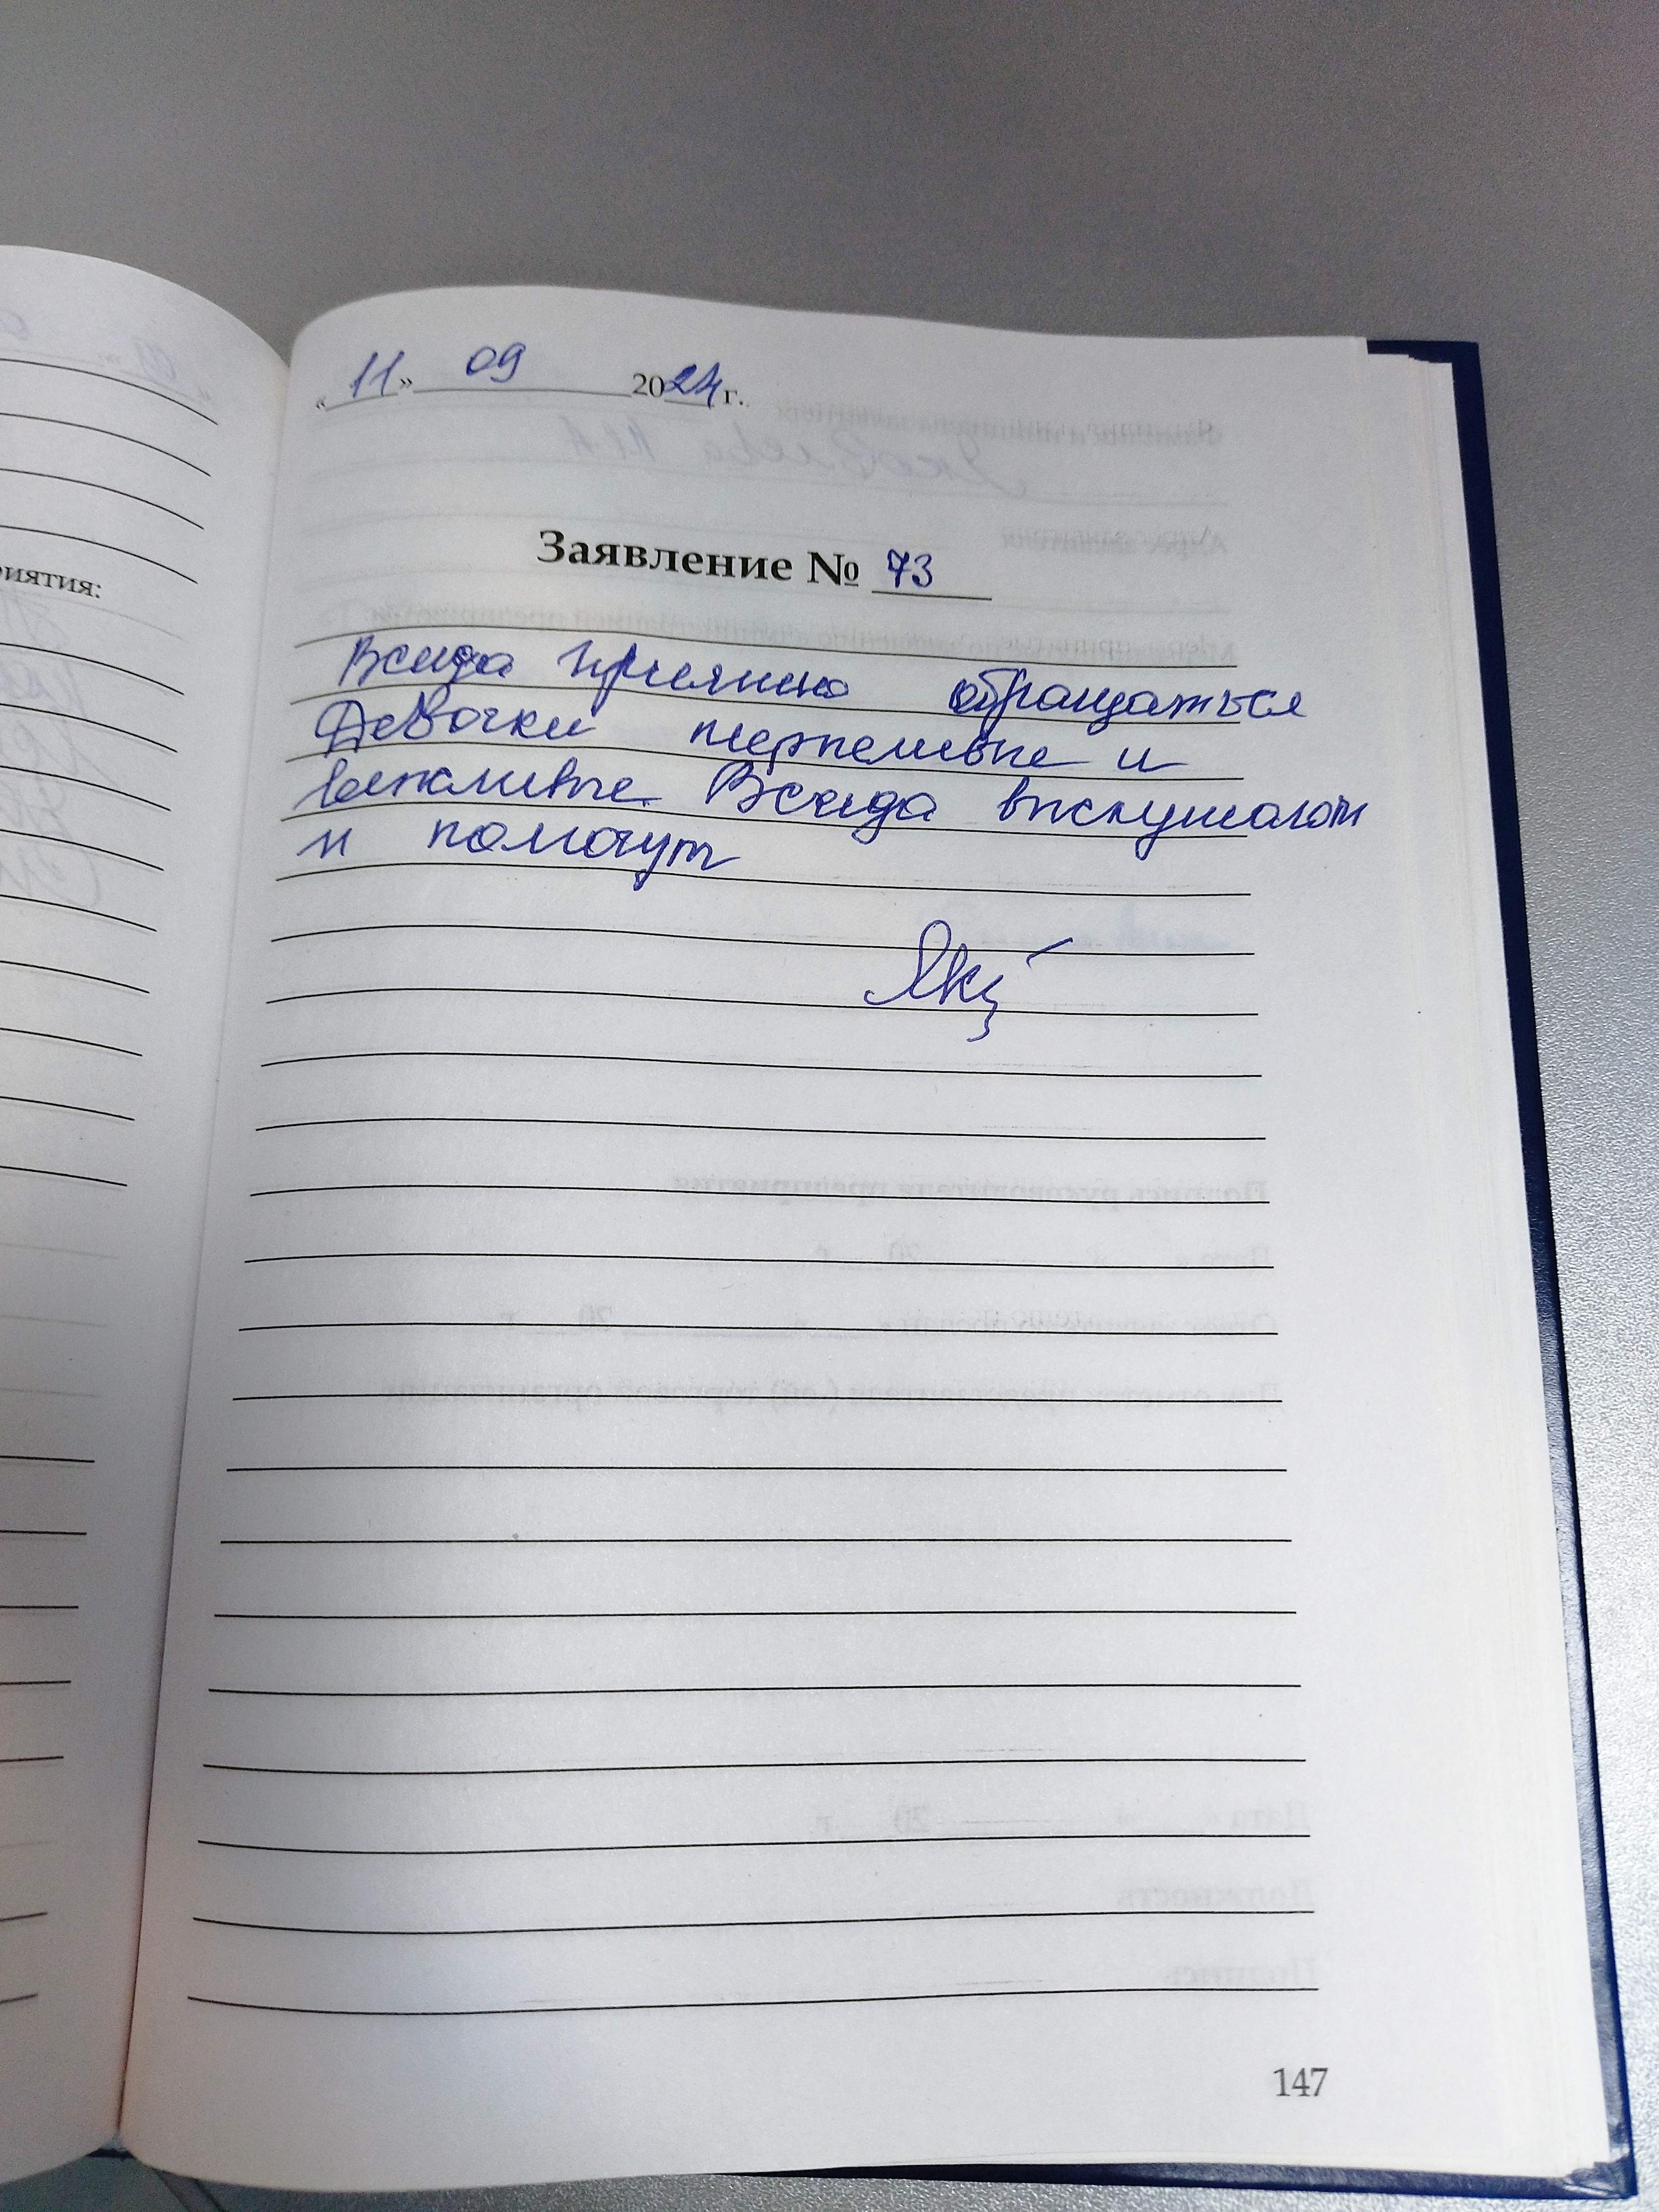 «11» 09 2024 г.
Заявление № 73
Всегда приятно обращаться
Девочки терпеливые и
вежливые. Всегда выслушают
и помогут
147
риятия: